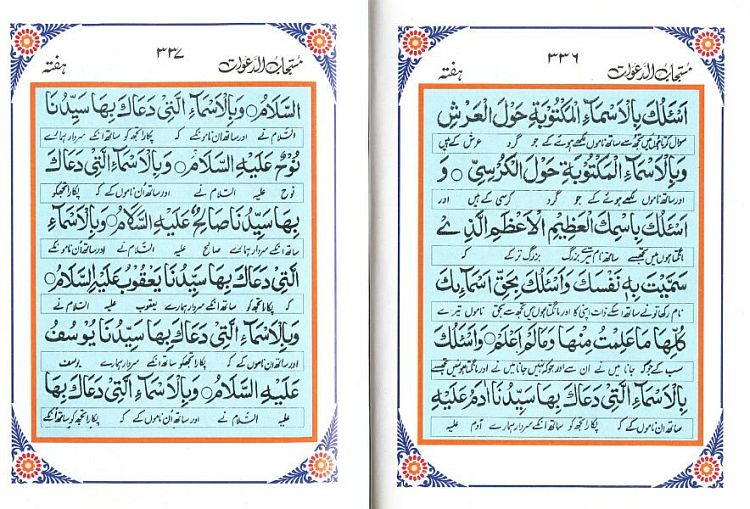 مستجاب الدعوات ٣٣٦ ہفتہ
اَسْئَلُكَ بِالْاَسْمَآءِ الْمَكْتُوْبَةِ حَوْلَ الْعَرْشِ
سوال کرتا ہوں میں تجھ سے ساتھ ناموں لکھے ہوئے کے جو گرد عرش کے ہیں
وَبِالْاَسْمَآءِ الْمَكْتُوْبَةِ حَوْلَ الْكُرْسِيِّ ○ وَ
اور ساتھ ناموں لکھے ہوئے کے جو گرد کرسی کے ہیں اور
اَسْئَلُكَ بِاسْمِكَ الْعَظِيْمِ الْاَعْظَمِ الَّذِىْ
مانگتا ہوں میں تجھ سے ساتھ نام تیرے بزرگ بزرگ تر کے کہ
سَمَّيْتَ بِهٖ نَفْسَكَ وَاَسْئَلُكَ بِحَقِّ اَسْمَآئِكَ
نام رکھا تو نے ساتھ اسکے ذات اپنی کا اور مانگتا ہوں میں تجھ سے بحق ناموں تیرے
كُلِّهَا مَا عَلِمْتُ مِنْهَا وَمَا لَمْ اَعْلَمْ ○ وَاَسْئَلُكَ
سب کے جو کہ جانا میں نے ان سے اور جو کہ نہیں جانا میں نے اور مانگتا ہوں میں تجھ سے
بِالْاَسْمَآءِ الَّتِىْ دَعَاكَ بِهَا سَيِّدُنَا اٰدَمُ عَلَيْهِ
ساتھ ان ناموں کے کہ پکارا تجھ کو ساتھ انکے سردار ہمارے آدم علیہ
مستجاب الدعوات ٣٣٧ ہفتہ
السَّلَامُ ○ وَبِالْاَسْمَآءِ الَّتِىْ دَعَاكَ بِهَا سَيِّدُنَا
السّلام نے اور ساتھ ان ناموں کے کہ پکارا تجھ کو ساتھ انکے سردار ہمارے
نُوْحٌ عَلَيْهِ السَّلَامُ ○ وَبِالْاَسْمَآءِ الَّتِىْ دَعَاكَ
نوح علیہ السّلام نے اور ساتھ ان ناموں کے کہ پکارا تجھ کو
بِهَا سَيِّدُنَا صَالِحٌ عَلَيْهِ السَّلَامُ ○ وَبِالْاَسْمَآءِ
ساتھ انکے سردار ہمارے صالح علیہ السّلام نے اور ساتھ ان ناموں کے
الَّتِىْ دَعَاكَ بِهَا سَيِّدُنَا يَعْقُوْبُ عَلَيْهِ السَّلَامُ ○
کہ پکارا تجھ کو ساتھ انکے سردار ہمارے یعقوب علیہ السّلام نے
وَبِالْاَسْمَآءِ الَّتِىْ دَعَاكَ بِهَا سَيِّدُنَا يُوْسُفُ
اور ساتھ ان ناموں کے کہ پکارا تجھ کو ساتھ انکے سردار ہمارے یوسف
عَلَيْهِ السَّلَامُ ○ وَبِالْاَسْمَآءِ الَّتِىْ دَعَاكَ بِهَا
علیہ السّلام نے اور ساتھ ان ناموں کے کہ پکارا تجھ کو ساتھ انکے